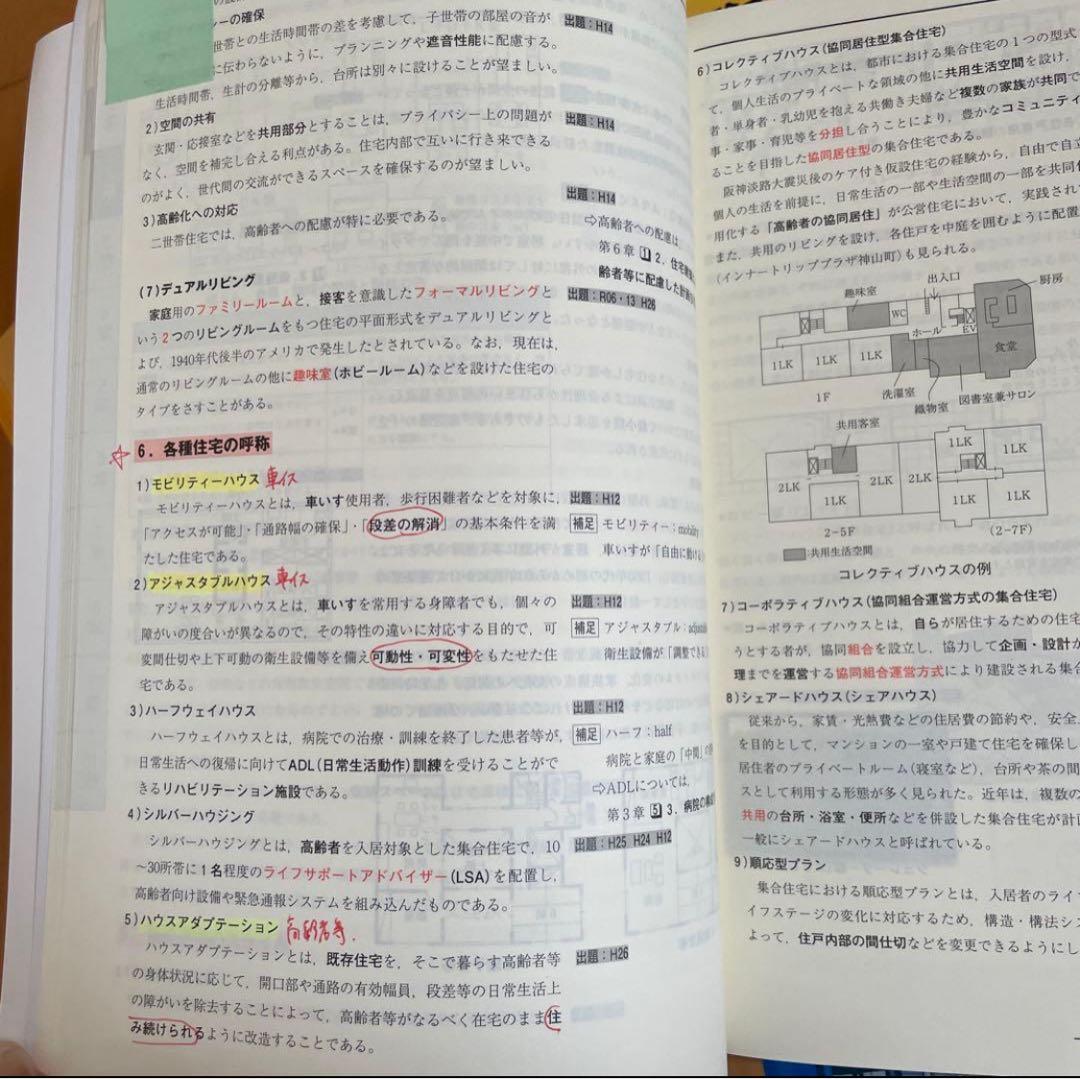 ーの確保
世帯との生活時間帯の差を考慮して，子世帯の部屋の音が
に伝わらないように，プランニングや遮音性能に配慮する。
生活時間帯，生計の分離等から，台所は別々に設けることが望ましい。
出題：H14
2)空間の共有
玄関・応接室などを共用部分とすることは，プライバシー上の問題が
なく，空間を補完し合える利点がある。住宅内部で互いに行き来できる
のがよく，世代間の交流ができるスペースを確保するのが望ましい。
出題：H14
3)高齢化への対応
二世帯住宅では，高齢者への配慮が特に必要である。
出題：H14
⇨高齢者への配慮は，
第6章 1 2．住宅
齢者等に配慮した計
(7)デュアルリビング
家庭用のファミリールームと，接客を意識したフォーマルリビングと
いう2つのリビングルームをもつ住宅の平面形式をデュアルリビングと
よび，1940年代後半のアメリカで発生したとされている。なお，現在は，
通常のリビングルームの他に趣味室(ホビールーム)などを設けた住宅の
タイプをさすことがある。
出題：R06・13 H26
☆ 6．各種住宅の呼称
1)モビリティーハウス 車イス
モビリティーハウスとは，車いす使用者，歩行困難者などを対象に，
「アクセスが可能」・「通路幅の確保」・「段差の解消」の基本条件を満
たした住宅である。
出題：H12
補足 モビリティー：mobility
車いすが「自由に動ける
2)アジャスタブルハウス 車イス
アジャスタブルハウスとは，車いすを常用する身障者でも，個々の
障がいの度合いが異なるので，その特性の違いに対応する目的で，可
変間仕切や上下可動の衛生設備等を備え可動性・可変性をもたせた住
宅である。
出題：H12
補足 アジャスタブル：adjustable
衛生設備が「調整できる
3)ハーフウェイハウス
ハーフウェイハウスとは，病院での治療・訓練を終了した患者等が，
日常生活への復帰に向けてADL(日常生活動作)訓練を受けることがで
きるリハビリテーション施設である。
出題：H12
補足 ハーフ：half
病院と家庭の「中間」の
⇨ADLについては，
第3章 5 3．病院の
4)シルバーハウジング
シルバーハウジングとは，高齢者を入居対象とした集合住宅で，10
～30所帯に1名程度のライフサポートアドバイザー(LSA)を配置し，
高齢者向け設備や緊急通報システムを組み込んだものである。
出題：H25 H24 H12
5)ハウスアダプテーション 高齢者等．
ハウスアダプテーションとは，既存住宅を，そこで暮らす高齢者等
の身体状況に応じて，開口部や通路の有効幅員，段差等の日常生活上
の障がいを除去することによって，高齢者等がなるべく在宅のまま住
み続けられるように改造することである。
出題：H26
6)コレクティブハウス(協同居住型集合住宅)
コレクティブハウスとは，都市における集合住宅の1つの型式
て，個人生活のプライベートな領域の他に共用生活空間を設け，
者・単身者・乳幼児を抱える共働き夫婦など複数の家族が共同で
事・家事・育児等を分担し合うことにより，豊かなコミュニティ
ることを目指した協同居住型の集合住宅である。
阪神淡路大震災後のケア付き仮設住宅の経験から，自由で自立
個人の生活を前提に，日常生活の一部や生活空間の一部を共同化
用化する「高齢者の協同居住」が公営住宅において，実践され
また，共用のリビングを設け，各住戸を中庭を囲むように配置
(インナートリッププラザ神山町)も見られる。
趣味室
出入口
厨房
WC
ホール
EV
食堂
1LK
1LK
1LK
洗濯室
織物室
図書室兼サロン
1F
共用客室
2LK
1LK
2LK
2LK
1LK
1LK
1LK
1LK
2-5F
(2-7F)
:共用生活空間
コレクティブハウスの例
7)コーポラティブハウス(協同組合運営方式の集合住宅)
コーポラティブハウスとは，自らが居住するための住宅
うとする者が，協同組合を設立し，協力して企画・設計か
理までを運営する協同組合運営方式により建設される集合
8)シェアードハウス(シェアハウス)
従来から，家賃・光熱費などの住居費の節約や，安全
を目的として，マンションの一室や戸建て住宅を確保し
居住者のプライベートルーム(寝室など)，台所や茶の間
スとして利用する形態が多く見られた。近年は，複数の
共用の台所・浴室・便所などを併設した集合住宅が計画
一般にシェアードハウスと呼ばれている。
9)順応型プラン
集合住宅における順応型プランとは，入居者のライ
イフステージの変化に対応するため，構造・構法シス
よって，住戸内部の間仕切などを変更できるようにし